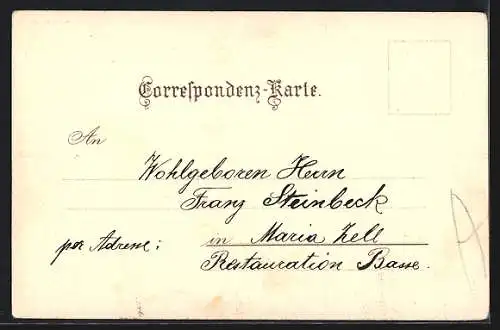 Correspondenz-Karte.
An
Wohlgeboren Herrn
Franz Steinbeck
per Adresse: in Maria Zell
Restauration Basse.